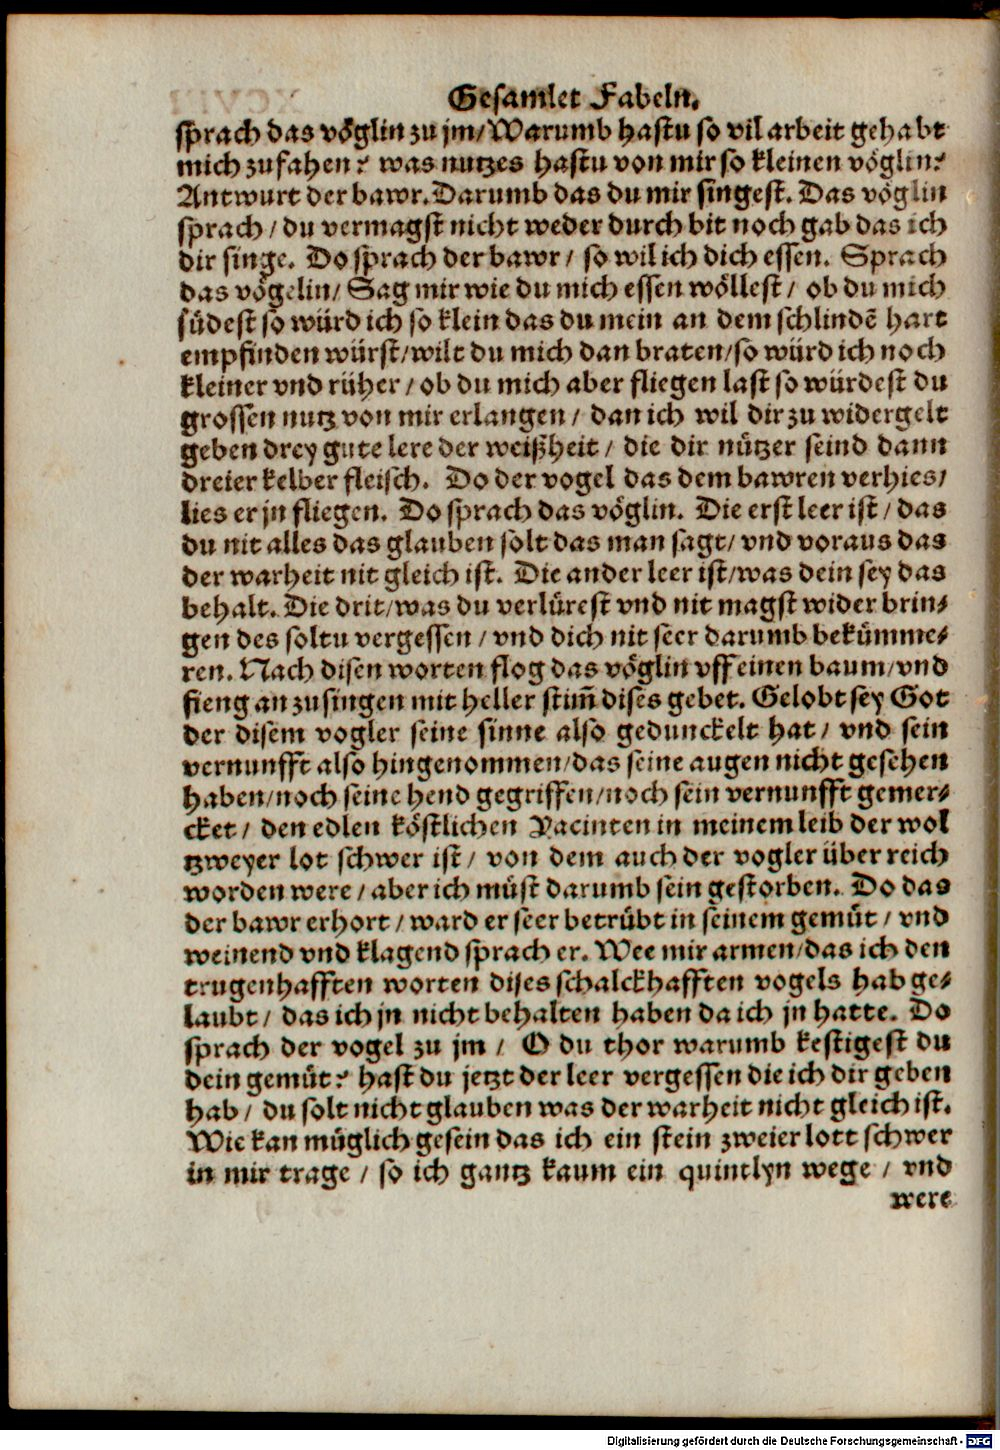 Gesamlet Fabeln.
sprach das vöglin zu jm/Warumb hastu so vil arbeit gehabt
mich zufahen? was nutzes hastu von mir so kleinen vöglin?
Antwurt der bawr. Darumb das du mir singest. Das vöglin
sprach/ du vermagst nicht weder durch bit noch gab das ich
dir singe. Do sprach der bawr/ so wil ich dich essen. Sprach
das vögelin/ Sag mir wie du mich essen wöllest/ ob du mich
südest so würd ich so klein das du mein an dem schlindẽ hart
empfinden würst/wilt du mich dan braten/so würd ich noch
kleiner vnd rüher/ ob du mich aber fliegen last so würdest du
grossen nutz von mir erlangen/ dan ich wil dir zu widergelt
geben drey gute lere der weißheit/ die dir nützer seind dann
dreier kelber fleisch. Do der vogel das dem bawren verhies/
lies er jn fliegen. Do sprach das vöglin. Die erst leer ist/ das
du nit alles das glauben solt das man sagt/ vnd voraus das
der warheit nit gleich ist. Die ander leer ist/was dein sey das
behalt. Die drit/was du verlürest vnd nit magst wider brin-
gen des soltu vergessen/ vnd dich nit seer darumb bekümme-
ren. Nach disen worten flog das vöglin vff einen baum/vnd
fieng an zusingen mit heller stim̃ dises gebet. Gelobt sey Got
der disem vogler seine sinne also gedunckelt hat/ vnd sein
vernunfft also hingenommen/das seine augen nicht gesehen
haben/noch seine hend gegriffen/noch sein vernunfft gemer-
cket/ den edlen köstlichen Yacinten in meinem leib der wol
tzweyer lot schwer ist/ von dem auch der vogler über reich
worden were/ aber ich müst darumb sein gestorben. Do das
der bawr erhort/ ward er seer betrübt in seinem gemüt/ vnd
weinend vnd klagend sprach er. Wee mir armen/das ich den
trugenhafften worten dises schalckhafften vogels hab ge-
laubt/ das ich jn nicht behalten haben da ich jn hatte. Do
sprach der vogel zu jm/ O du thor warumb kestigest du
dein gemüt? hast du jetzt der leer vergessen die ich dir geben
hab/ du solt nicht glauben was der warheit nicht gleich ist.
Wie kan müglich gesein das ich ein stein zweier lott schwer
in mir trage/ so ich gantz kaum ein quintlyn wege/ vnd
were
Digitalisierung gefördert durch die Deutsche Forschungsgemeinschaft - DFG